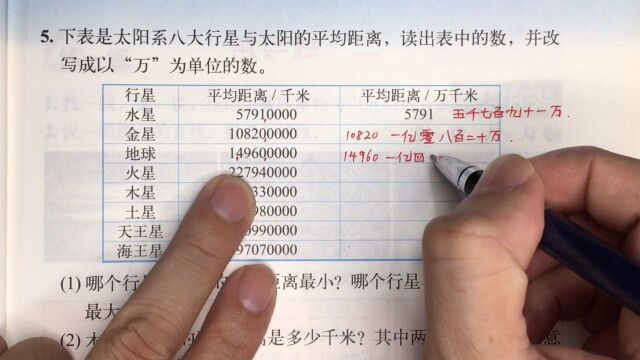 5. 下表是太阳系八大行星与太阳的平均距离，读出表中的数，并改
写成以“万”为单位的数。
行星 平均距离/千米 平均距离/万千米
水星 57910000 5791 五千七百九十一万.
金星 108200000 10820 一亿零八百二十万.
地球 149600000 14960 一亿四
火星 227940000
木星 330000
土星 980000
天王星 990000
海王星 97070000
(1) 哪个行 距离最小？哪个行星
最大
(2) 木 是多少千米？其中两 意